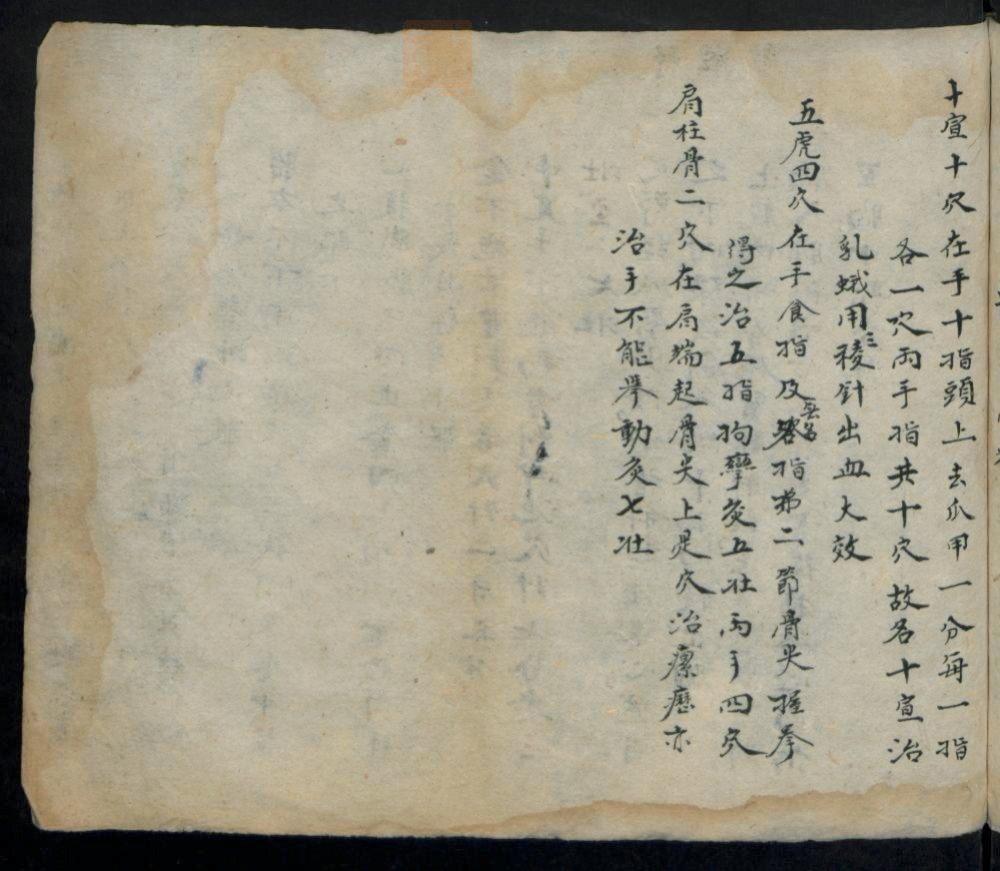 十宣十穴在手十指頭上去爪甲一分每一指
各一穴両手指共十穴故名十宣治
乳蛾用三稜針出血大效
五虎四穴在手食指及無名指第二節骨尖握拳
得之治五指拘攣灸五壯両手四穴
肩柱骨二穴在肩端起骨尖上是穴治瘰癧亦
治手不能舉動灸七壯